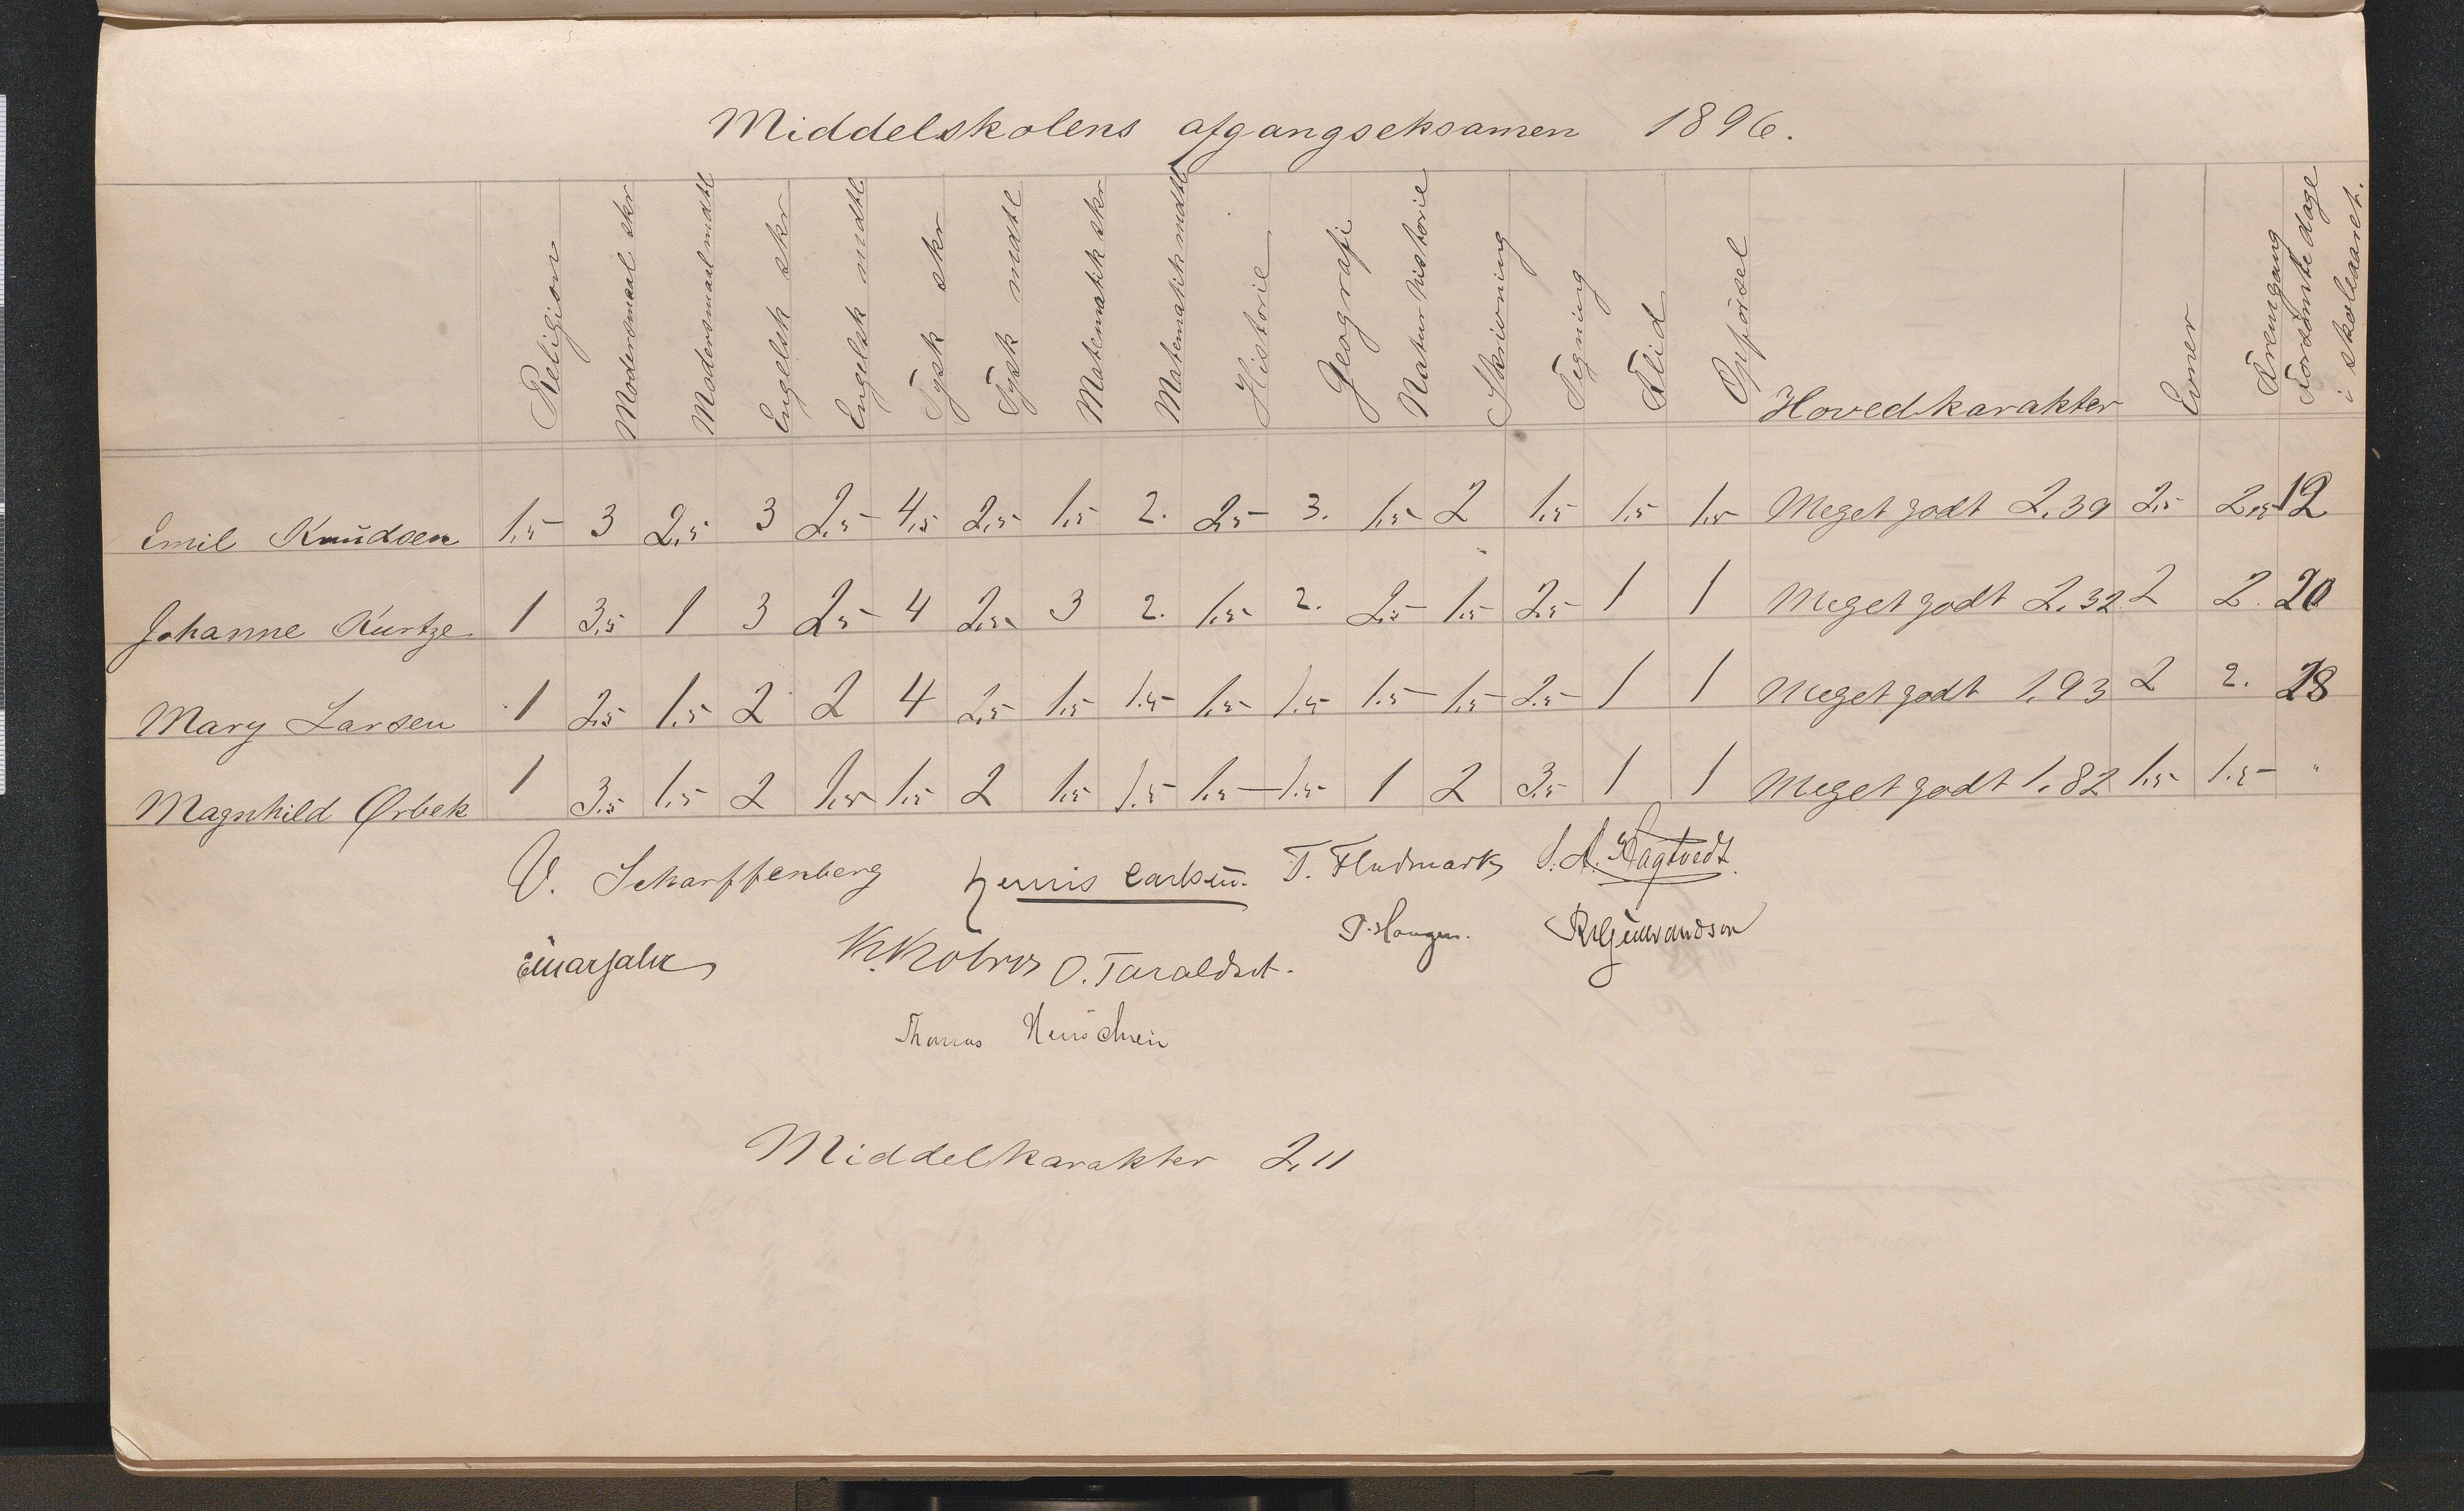 Middelskolens afgangseksamen 1896.
Religion Modersmaal skr Modersmaal mdtl Engelsk skr Engelsk mdtl Tysk skr Tysk mdtl Matematik skr Matematik mdtl Historie Geografi Naturhistorie Skrivning Tegning Flid Opførsel Hovedkarakter Evner Fremgang Forsømte dage i skoleaaret.
Emil Knudsen 1,5 3 2,5 3 2,5 4,5 2,5 1,5 2. 2,5 3. 1,5 2 1,5 1,5 1,5 Meget godt 2,39 2,5 2,5 12
Johanne Kurtze 1 3,5 1 3 2,5 4 2,5 3 2. 1,5 2. 2,5 1,5 2,5 1 1 Meget godt 2,32 2 2. 20
Mary Larsen 1 2,5 1,5 2 2 4 2,5 1,5 1,5 1,5 1,5 1,5 1,5 2,5 1 1 Meget godt 1,93 2 2. 28
Magnhild Ørbek 1 3,5 1,5 2 1,5 1,5 2 1,5 1,5 1,5 1,5 1 2 3,5 1 1 Meget godt 1,82 1,5 1,5 "
V. Scharffenberg Carlsen. T. Fladmark S. A. Hagtvedt.
Einar Jahr O. Taraldset. T. Haugen.
Thomas
Middelkarakter 2,11